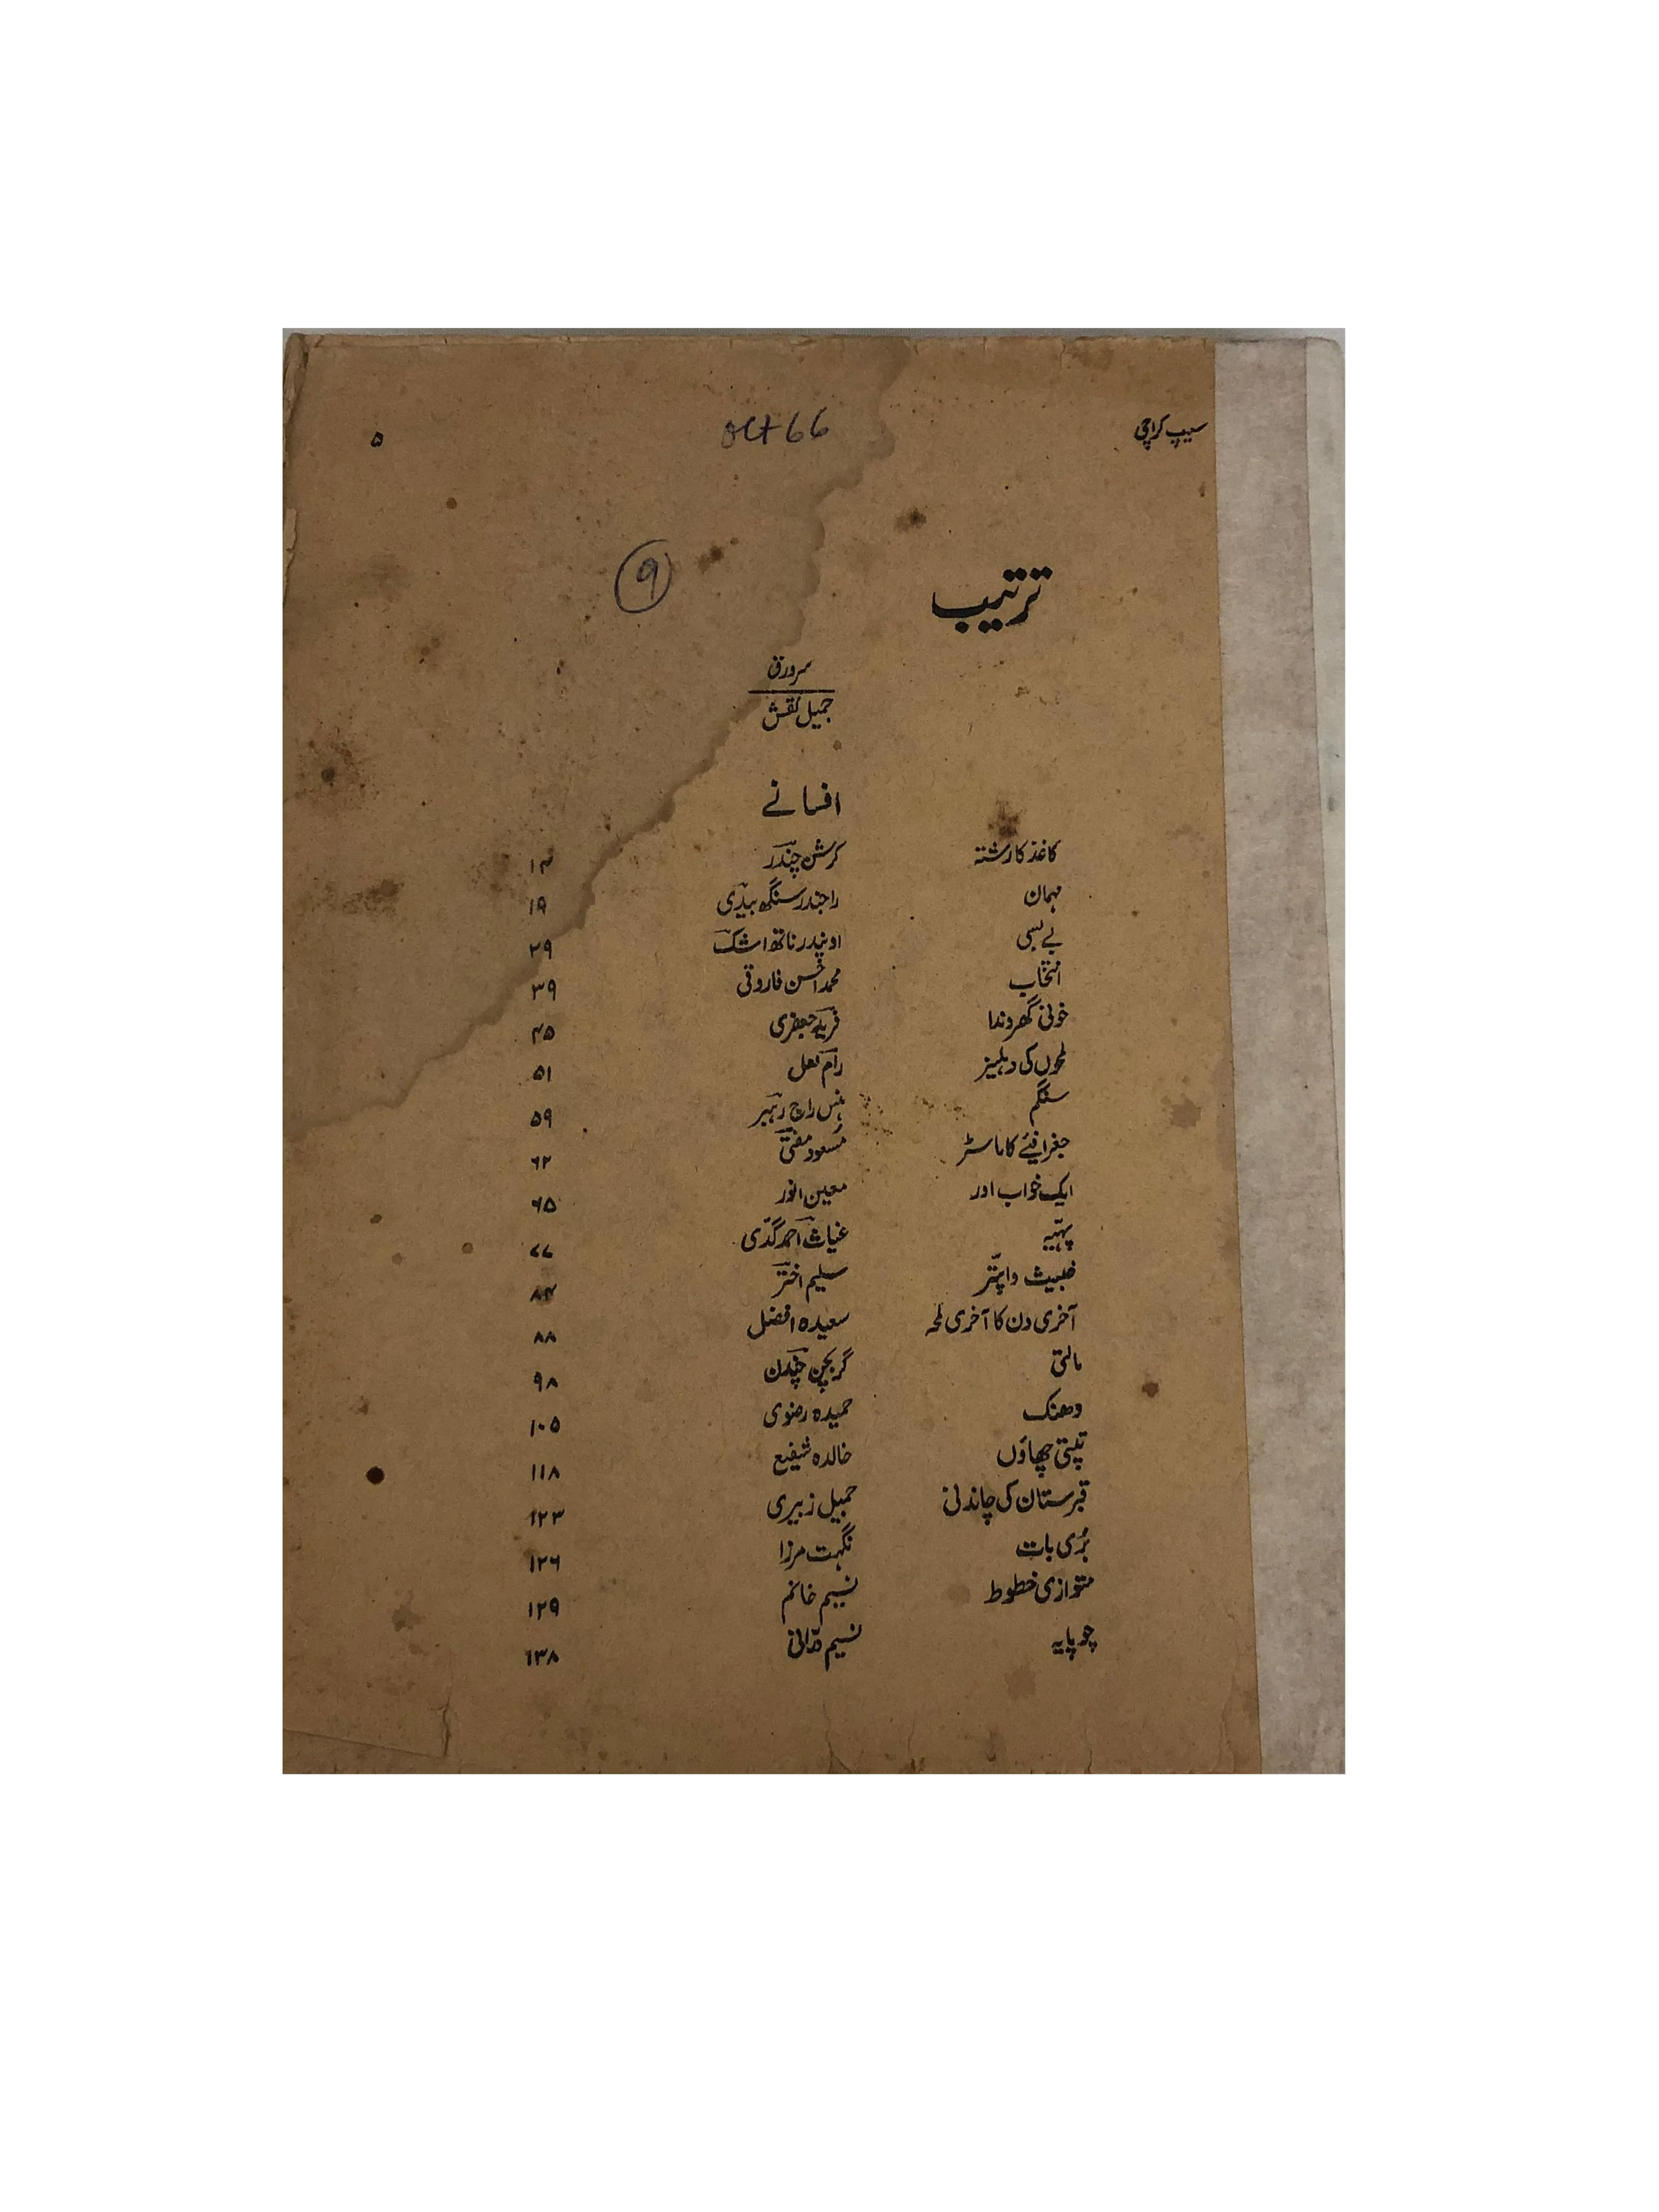 سیپ کراچی oct 66 ۵
ترتیب ۹
سرورق
جمیل نقش
افسانے
کاغذ کا رشتہ کرشن چندر ۱۴
مہمان راجندر سنگھ بیدی ۱۹
بے بسی اوپندر ناتھ اشک ۲۹
انتخاب محمد احسن فاروقی ۳۹
خونی گھروندا فرید جعفری ۴۵
لمحوں کی دہلیز رام لعل ۵۱
سنگم ہنس راج رہبر ۵۹
جغرافیئے کا ماسٹر مسعود مفتی ۶۲
ایک خواب اور معین انور ۶۵
پہیّہ غیاث احمد گدّی ۷۷
خبیث دا پتّر سلیم اختر ۸۴
آخری دن کا آخری لمحہ سعیدہ افضل ۸۸
مالتی گربچن چندن ۹۸
دھنک حمیدہ رضوی ۱۰۵
تپتی چھاؤں خالدہ شفیع ۱۱۸
قبرستان کی چاندنی جمیل زبیری ۱۲۳
بُری بات نگہت مرزا ۱۲۶
متوازی خطوط نسیم خانم ۱۲۹
چوپایہ نسیم درّانی ۱۳۸